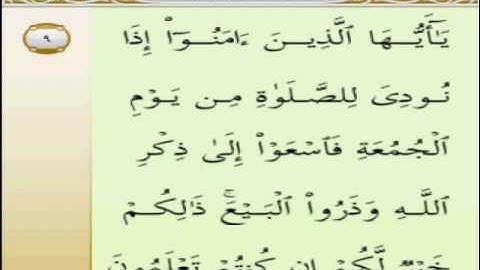 ٩
يَـٰٓأَيُّهَا ٱلَّذِينَ ءَامَنُوٓا۟ إِذَا
نُودِىَ لِلصَّلَوٰةِ مِن يَوْمِ
ٱلْجُمُعَةِ فَٱسْعَوْا۟ إِلَىٰ ذِكْرِ
ٱللَّهِ وَذَرُوا۟ ٱلْبَيْعَ ۚ ذَٰلِكُمْ
خَيْرٌ لَّكُمْ إِن كُنتُمْ تَعْلَمُونَ